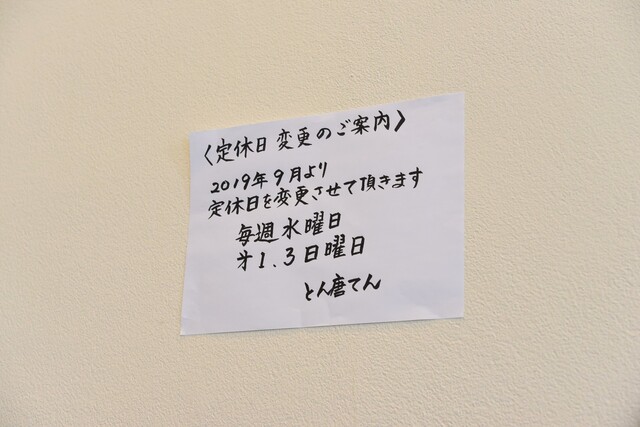 〈定休日 変更のご案内〉
2019年9月より
定休日を変更させて頂きます
毎週 水曜日
㐧1.3日曜日
とん唐てん